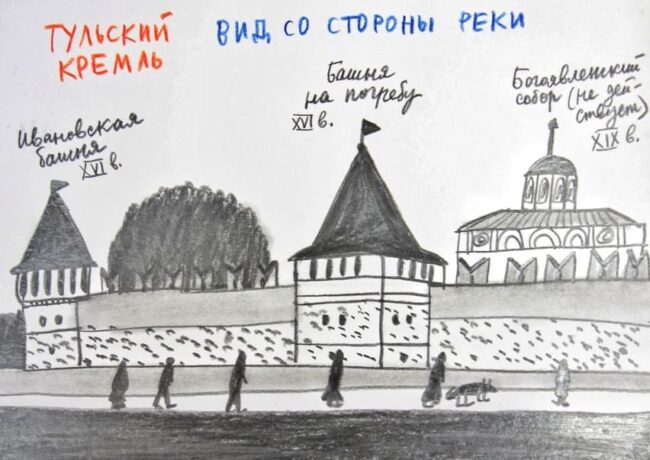 ТУЛЬСКИЙ
КРЕМЛЬ
ВИД СО СТОРОНЫ РЕКИ
Ивановская
башня
XVI в.
Башня
на погребу
XVI в.
Богоявленский
собор (не дей-
ствует)
XIX в.